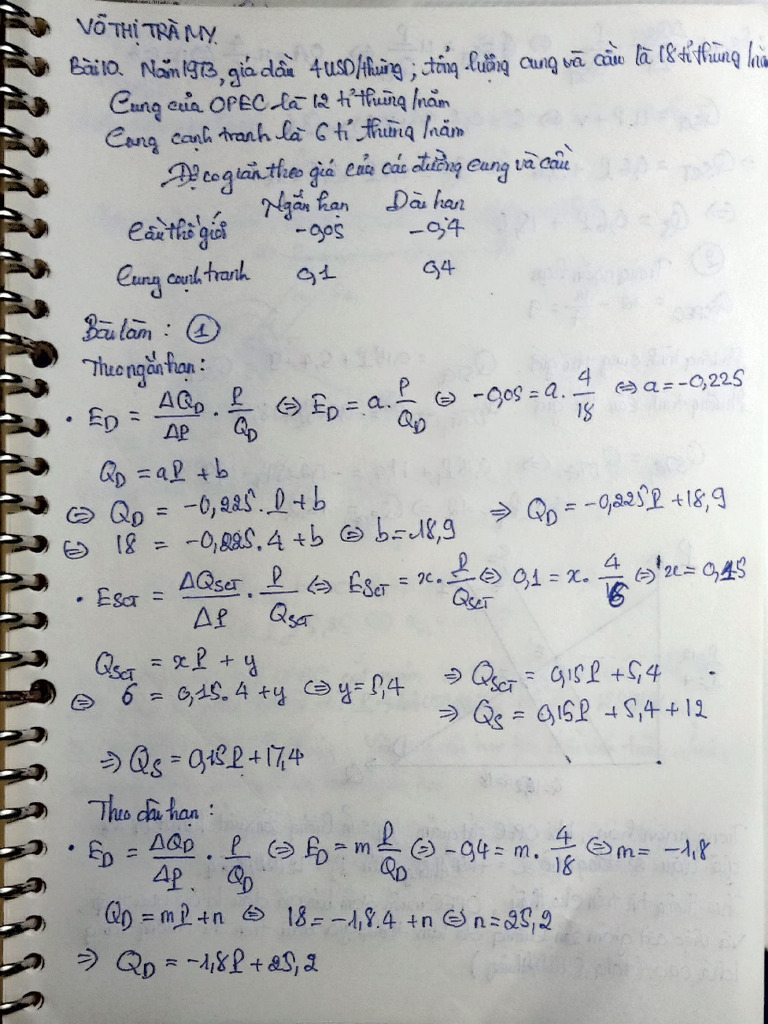 VÕ THỊ TRÀ MY
Bài 10. Năm 1973, giá dầu 4 USD/thùng; tổng lượng cung và cầu là 18 tỉ thùng/năm
Cung của OPEC là 12 tỉ thùng/năm
Cung cạnh tranh là 6 tỉ thùng/năm
Độ co giãn theo giá của các đường cung và cầu
Ngắn hạn Dài hạn
Cầu thế giới -0,05 -0,4
Cung cạnh tranh 0,1 0,4
Bài làm: ①
Theo ngắn hạn:
• E_D = ΔQ_D/ΔP . P/Q_D ⇔ E_D = a. P/Q_D ⇔ -0,05 = a. 4/18 ⇔ a = -0,225
Q_D = aP + b
⇔ Q_D = -0,225.P + b ⇒ Q_D = -0,225P + 18,9
⇔ 18 = -0,225.4 + b ⇔ b = 18,9
• E_SCT = ΔQ_SCT/ΔP . P/Q_SCT ⇔ E_SCT = x. P/Q_SCT ⇔ 0,1 = x. 4/6 ⇔ x = 0,15
Q_SCT = xP + y ⇒ Q_SCT = 0,15P + 5,4
⇔ 6 = 0,15.4 + y ⇔ y = 5,4 ⇒ Q_S = 0,15P + 5,4 + 12
⇒ Q_S = 0,15P + 17,4
Theo dài hạn:
• E_D = ΔQ_D/ΔP . P/Q_D ⇔ E_D = m P/Q_D ⇔ -0,4 = m. 4/18 ⇔ m = -1,8
Q_D = mP + n ⇔ 18 = -1,8.4 + n ⇔ n = 25,2
⇒ Q_D = -1,8P + 25,2